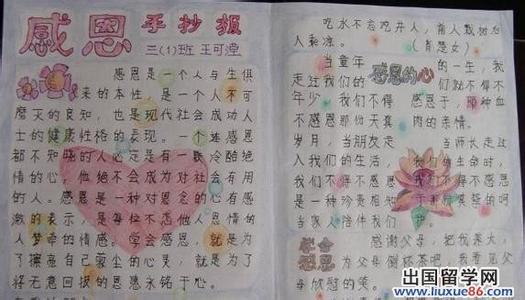 感恩 手抄报
三(1)班 王可滢
感恩是一个人与生俱
来的本性,是一个人不可
磨灭的良知,也是现代社会成功人
士的健康性格的表现。一个连感恩
都不知晓的人必定是有一颗冷酷绝
情的心,他绝不会成为对社会有用
的人。感恩是一种对恩惠的心存感
激的表示,是每位不忘他人恩情的
人萦绕的情感。学会感恩,就是为
了擦亮自己蒙尘的心灵,就是为了
将无意回报的恩惠永铭于心。
吃水不忘吃井人,前人栽树后
人乘凉。
感恩的心
当童年 的一生,我
走过我们的 们就不得不
年少 我们不得 感恩于,那种血
不感恩那份天真 肉的亲情。
岁月,当朋友走 当师长走过
入我们的生活, 我们的生命时,
我们不得不感恩 我们不得不感恩
是一种珍贵相知 于那份真挚的呵
当家人陪伴我们
学会感恩
感谢父母,把我养大,
为父母倒杯茶吧,我
母欣慰的笑。
出国留学网
www.liuxue86.com